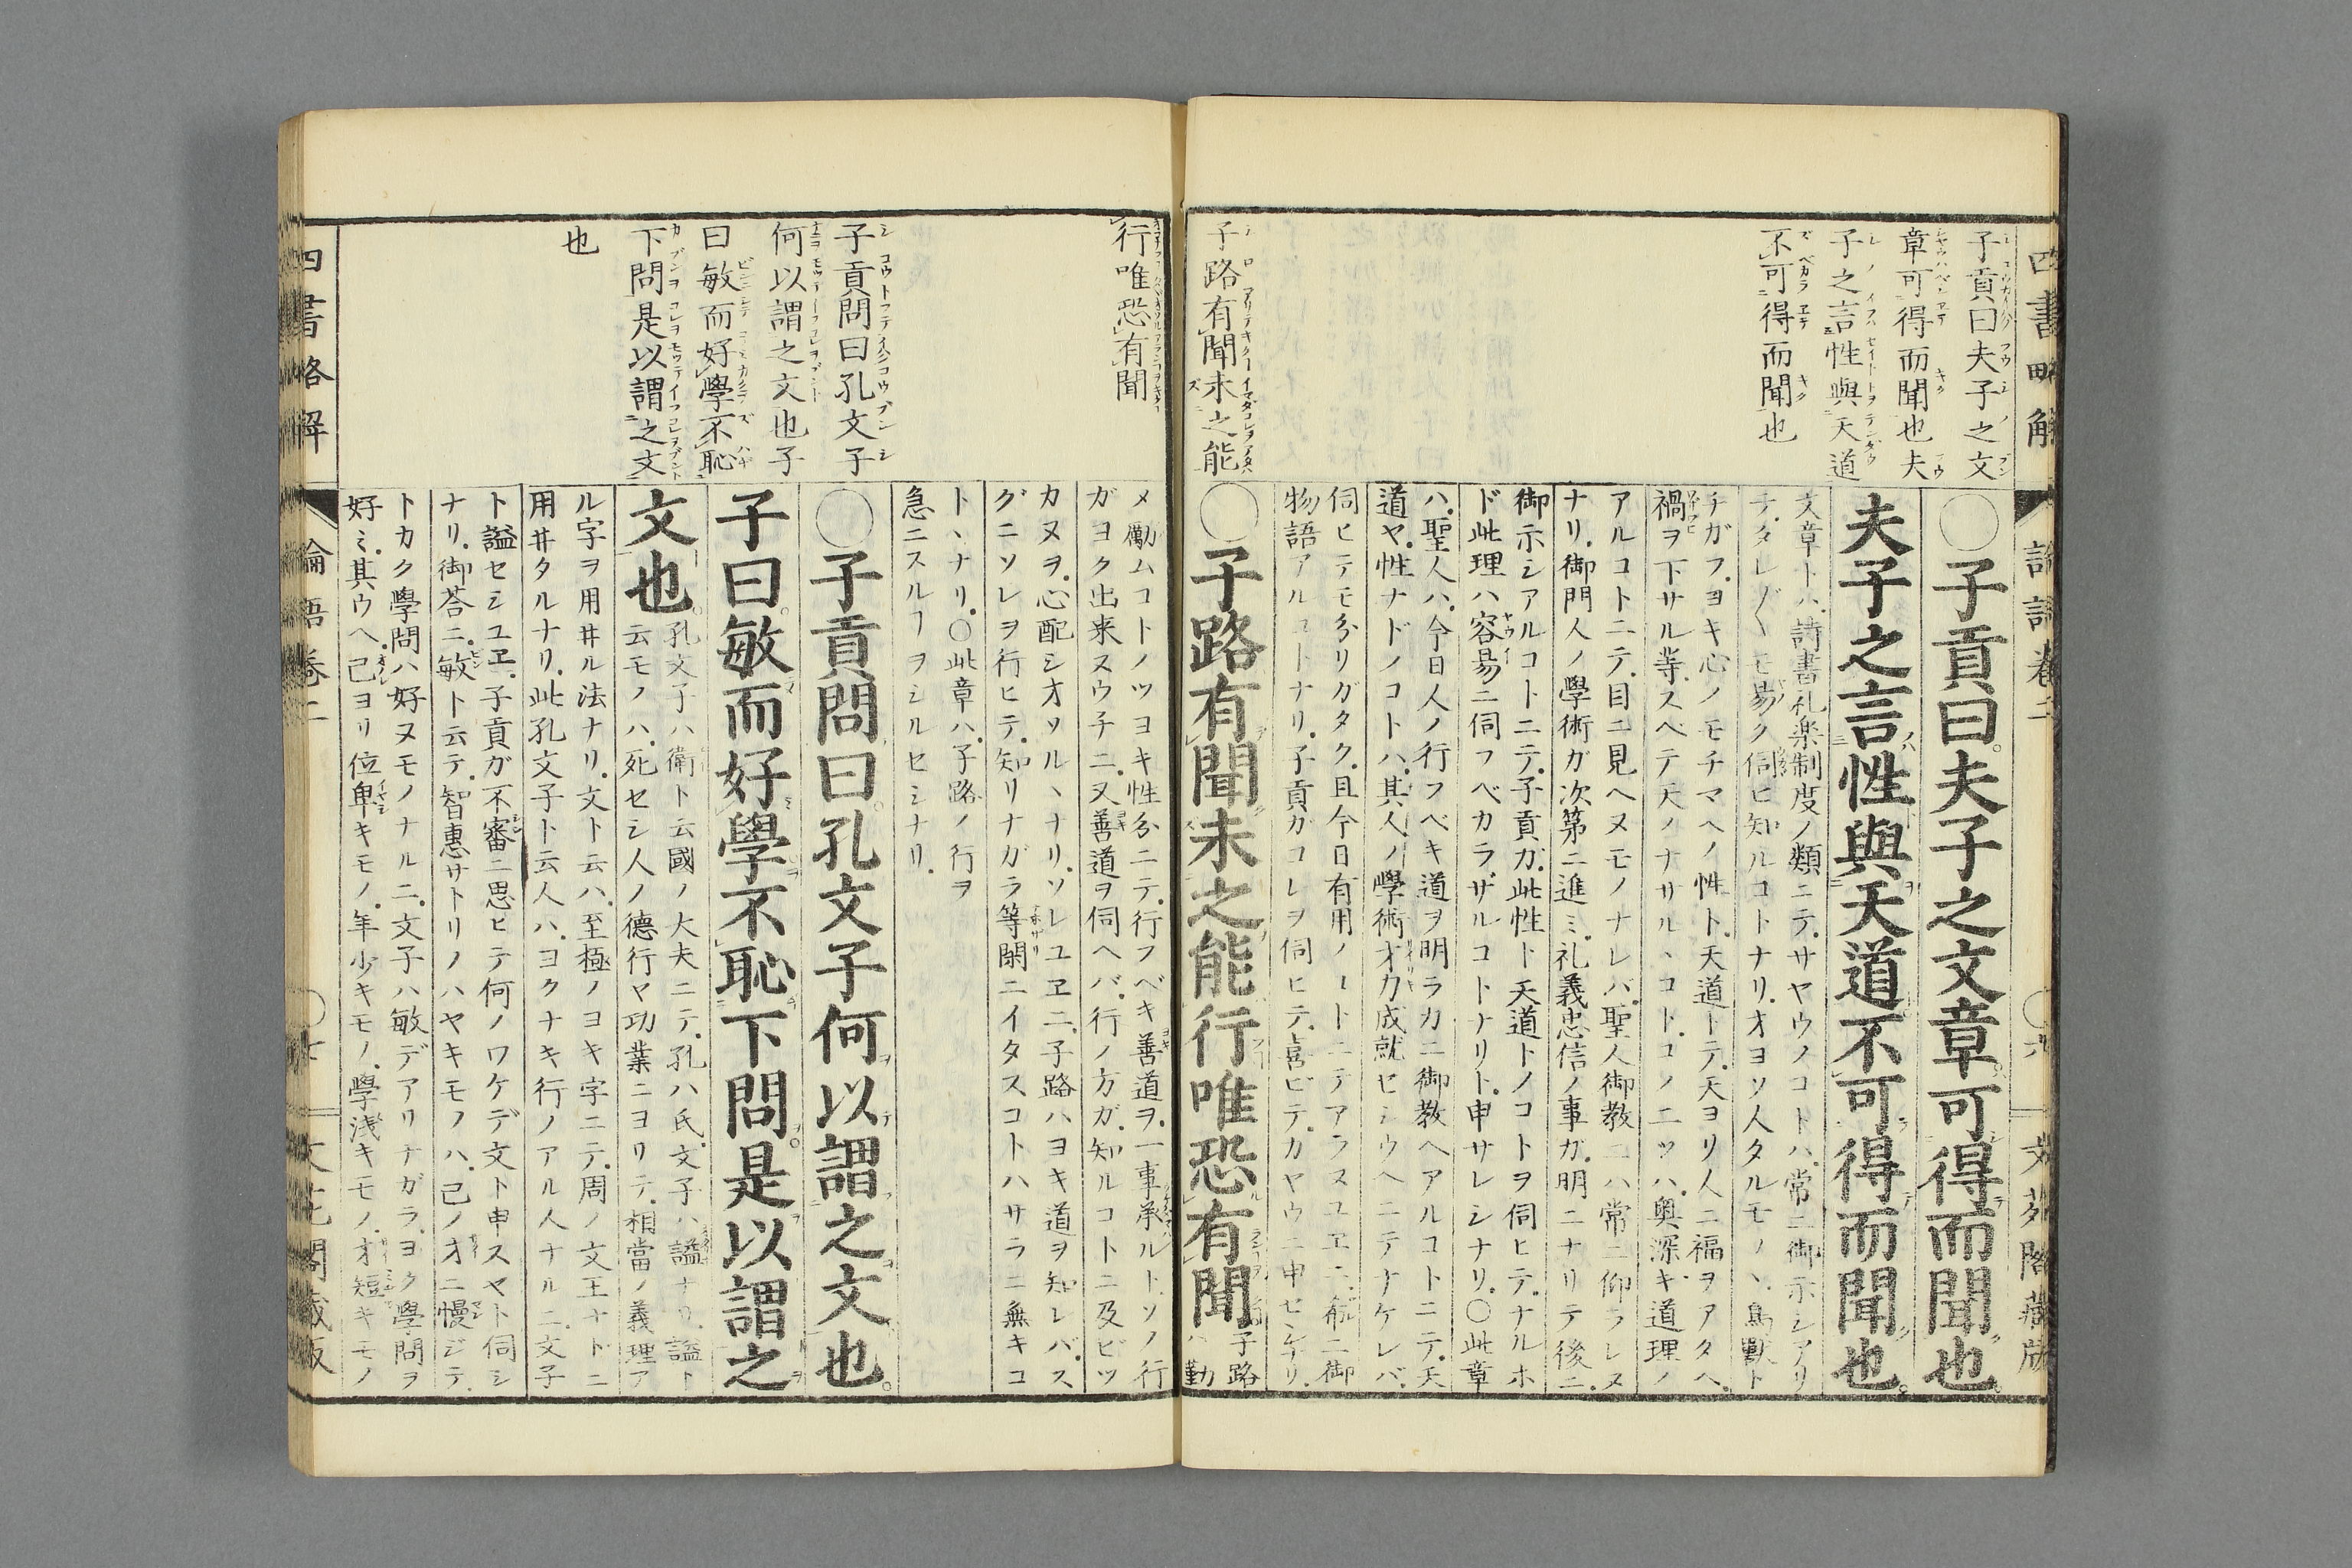 四書略解
論語卷二
○六
文苑閣藏版
子貢曰夫子之文
章可得而聞也夫
子之言性與天道
不可得而聞也
○子貢曰夫子之文章可得而聞也
夫子之言性與天道不可得而聞也
文章トハ詩書礼楽制度ノ類ニテサヤウノコトハ常ニ御示シアリ
テタレ〳〵モ易ク伺ヒ知ルコトナリオヨソ人タルモノヽ鳥獸ト
チガフヨキ心ノモチマヘノ性ト天道トテ天ヨリ人ニ福ヲアタヘ
禍ヲ下サル等スベテ天ノナサルヽコトコノ二ツハ奥深キ道理ノ
アルコトニテ目ニ見ヘヌモノナレバ聖人御教ニハ常ニ仰ラレヌ
ナリ御門人ノ學術ガ次第ニ進ミ礼義忠信ノ事ガ明ニナリテ後ニ
御示シアルコトニテ子貢ガ此性ト天道トノコトヲ伺ヒテナルホ
ド此理ハ容易ニ伺フベカラザルコトナリト申サレシナリ○此章
ハ聖人ハ今日人ノ行フベキ道ヲ明ラカニ御教ヘアルコトニテ天
道ヤ性ナドノコトハ其人ノ學術才力成就セシウヘニテナケレバ
伺ヒテモ分リガタク且今日有用ノコトニテアラスユヱニ御
物語アルコトナリ子貢ガコレヲ伺ヒテ喜ビテカヤウニ申セシナリ
子路有聞未之能
○子路有聞未之能行唯恐有聞
子路
ハ勤
行唯恐有聞
メ勵ムコトノツヨキ性分ニテ行フベキ善道ヲ一事承ルトソノ行
ガヨク出来スウチニ又善道ヲ伺ヘバ行ノ方ガ知ルコトニ及ビツ
カヌヲ心配シオソルヽナリソレユヱニ子路ハヨキ道ヲ知レバス
グニソレヲ行ヒテ知リナガラ等閑ニイタスコトハサラニ無キコ
トヽナリ○此章ハ子路ノ行ヲ
急ニスルヿヲシルセシナリ
子貢問曰孔文子
何以謂之文也子
曰敏而好學不恥
下問是以謂之文
也
○子貢問曰孔文子何以謂之文也
子曰敏而好學不恥下問是以謂之
文也
孔文子ハ衛ト云國ノ大夫ニテ孔ハ氏文子ハ謚ナリ謚ト
云モノハ死セシ人ノ德行ヤ功業ニヨリテ相當ノ義理ア
ル字ヲ用井ル法ナリ文ト云ハ至極ノヨキ字ニテ周ノ文王ナドニ
用井タルナリ此孔文子ト云人ハヨクナキ行ノアル人ナルニ文子
ト謚セシユヱ子貢ガ不審ニ思ヒテ何ノワケデ文ト申スヤト伺シ
ナリ御荅ニ敏ト云テ智惠サトリノハヤキモノハ己ノ才ニ慢ジテ
トカク學問ハ好ヌモノナルニ文子ハ敏デアリナガラヨク學問ヲ
好ミ其ウヘ己ヨリ位卑キモノ年少キモノ學淺キモノ才短キモノ
四書略解
論語卷二
○七
文苑閣藏版